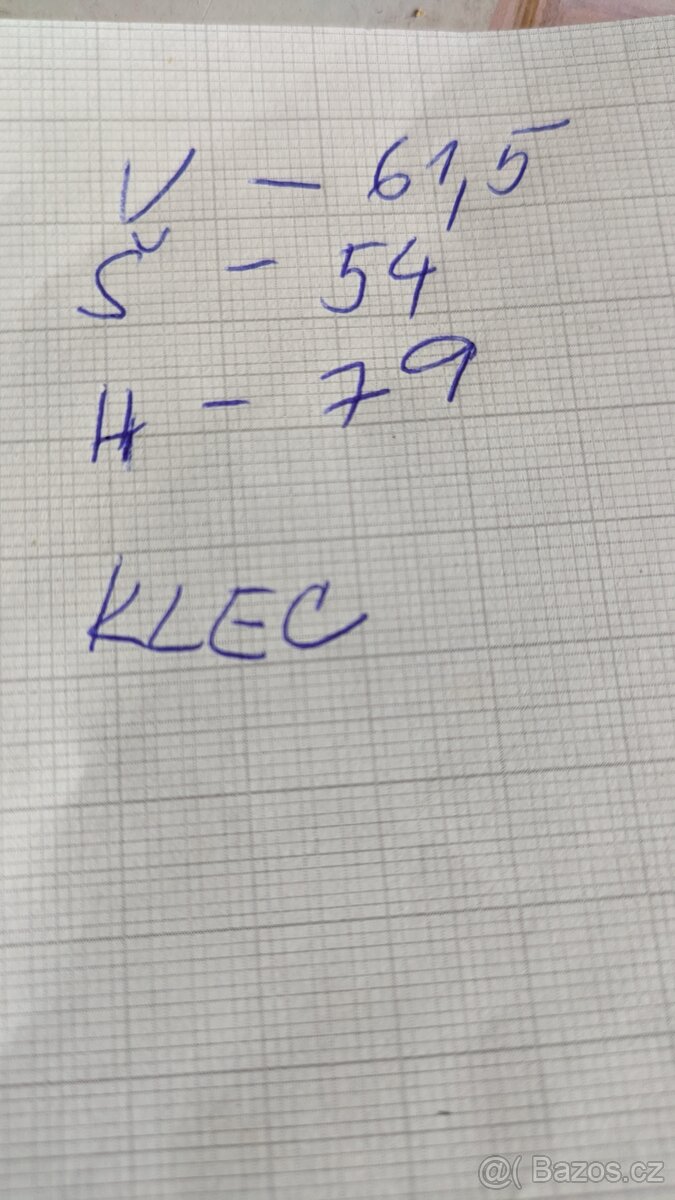 V – 61,5
Š – 54
H – 79
KLEC
@( Bazos.cz